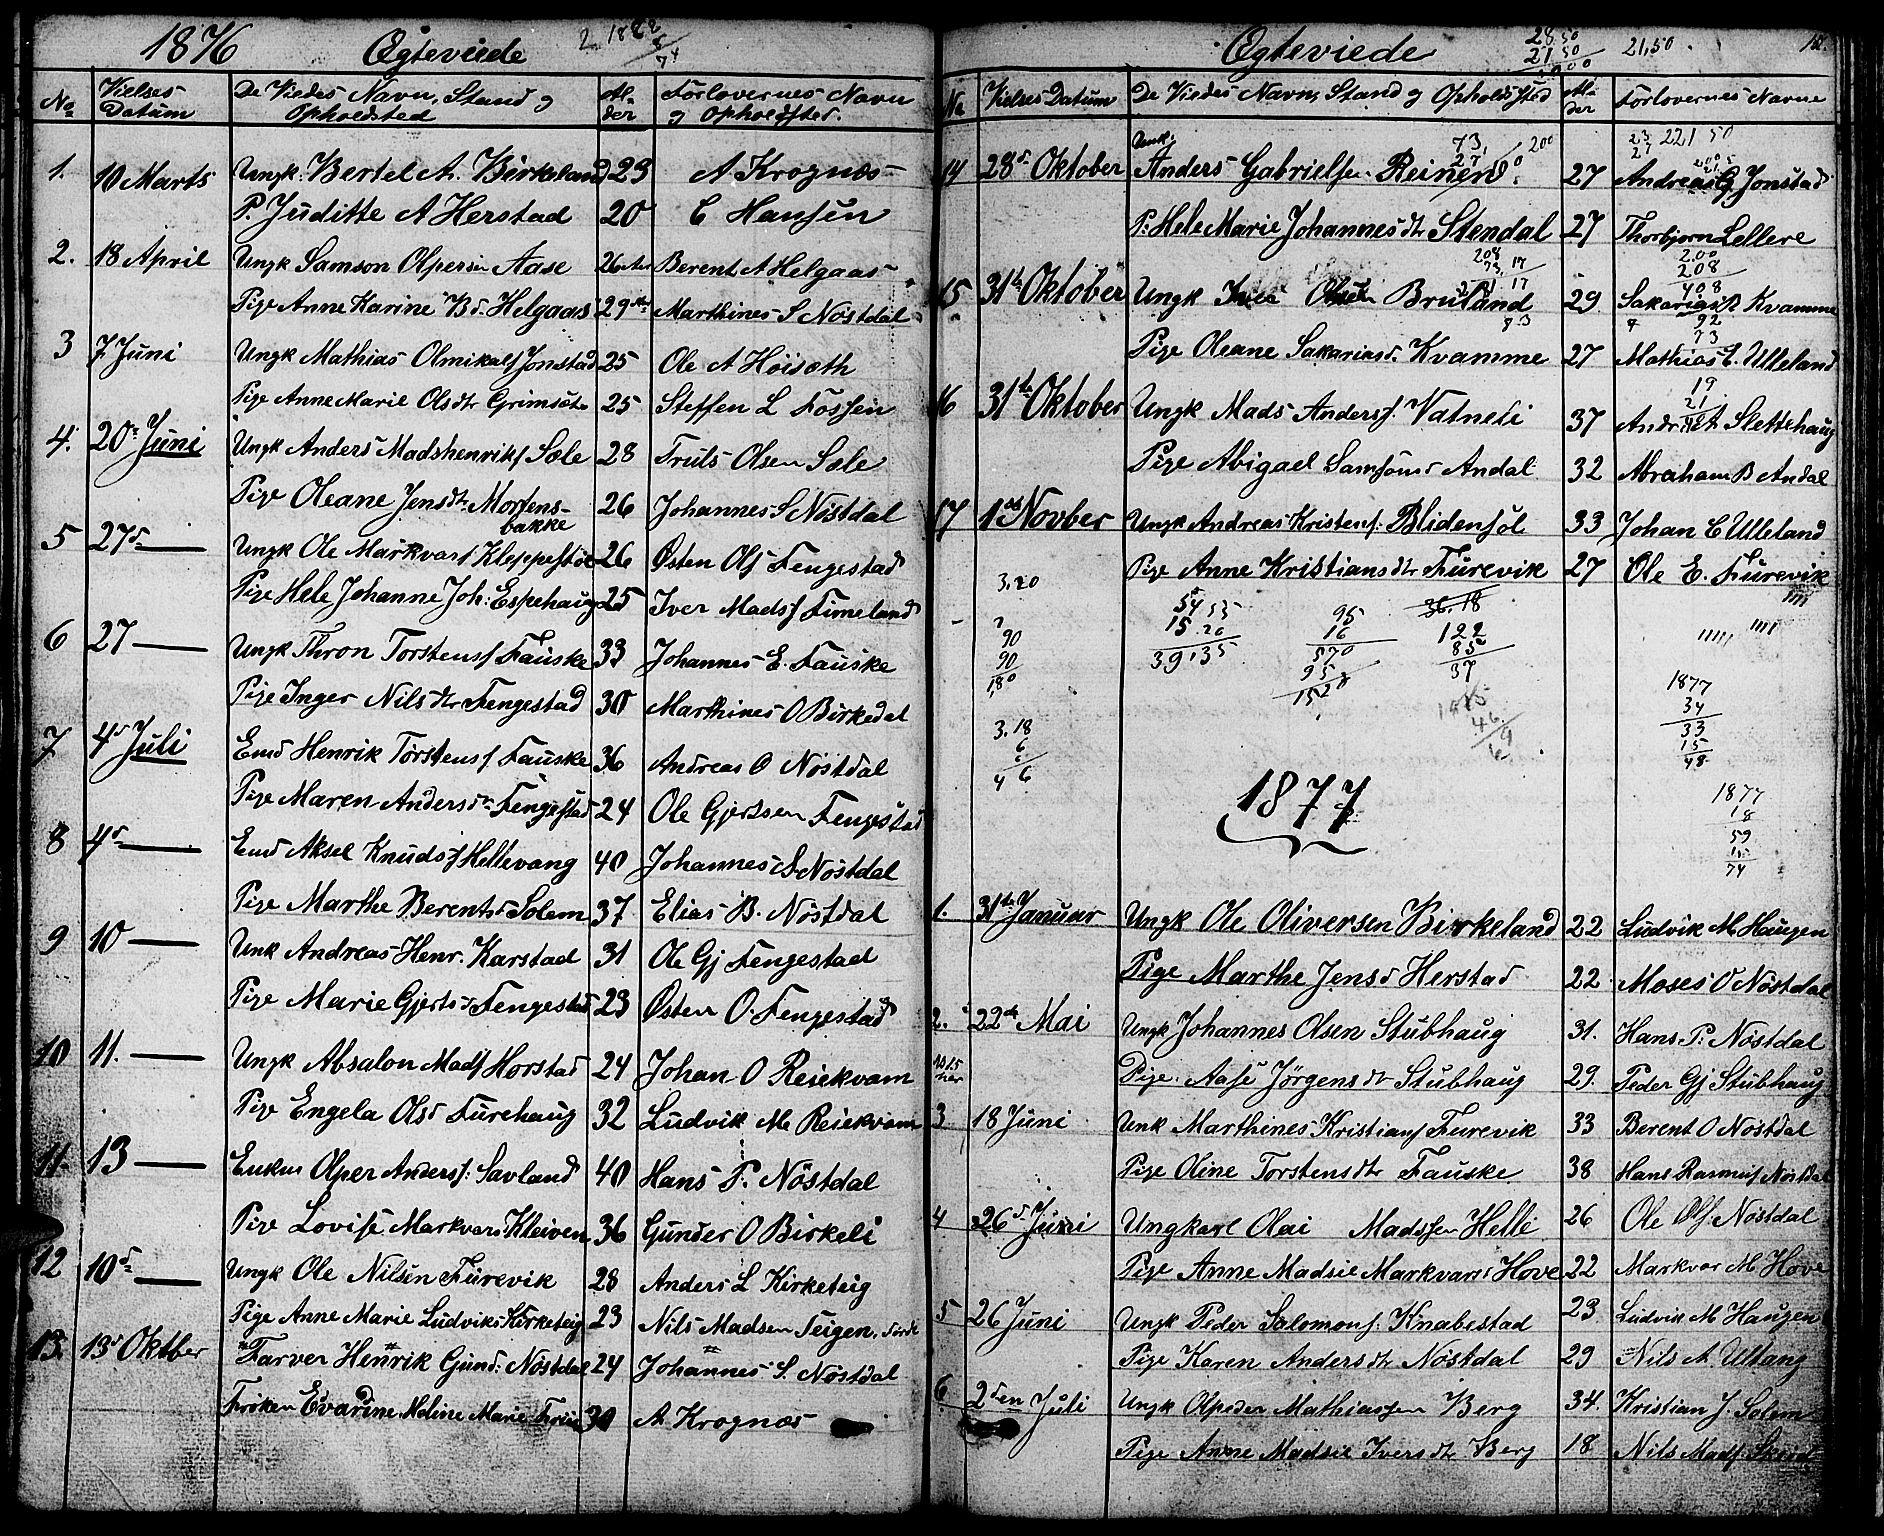 1876 Ægteviede
No Vielses Datum De Viedes Navn, Stand og Opholdsted Al-der Forlovernes Navn og Opholdster.
1. 10 Marts Ungk. Bertel A. Birkeland 23 A Krognæs
P. Juditte A Herstad 20 C Hansen
2. 18 April Ungk Samson Olpersen Aase 26 Berent A Helgaas
Pige Anne Karine Bd. Helgaas 29 Marthines S Nøstdal
3 7 Juni Ungk Mathias Olmikals Jonstad 25 Ole A Høisæth
Pige Anne Marie Olsdtr Grimsæt 25 Steffen L Fossen
4. 20 Juni Ungk Anders Madshenriks Sæle 28 Truls Olsen Sæle
Pige Oleane Jensdtr Mortens-bakke 26 Johannes S Nøstdal
5 27d — Ungk Ole Markvars Kleppestøl 26 Østen Ols Fengestad
Pige Hele Johanne Joh: Espehaug 25 Iver Mads Timeland
6 27 — Ungk Thron Torstens Fauske 33 Johannes E. Fauske
Pige Inger Nilsdtr Fengestad 30 Marthines O Birkedal
7 4d Juli Emd Henrik Torstens Fauske 36 Andreas O Nøstdal
Pige Maren Andersdtr Fengestad 24 Ole Gjertsen Fengestad
8 4d — Emd Aksel Knuds Hellevang 40 Johannes S Nøstdal
Pige Marthe Berentsd Solem 37 Elias B. Nøstdal
9 10 — Unk Andreas Henr. Karstad 31 Ole Gj Fengestad
Pige Marie Gjertsd Fengestad 23 Østen O. Fengestad
10 11. — Ungk Absalon Mads Horstad 24 Johan O Reiekvam
Pige Engela Olsd Furehaug 32 Ludvik M Reiekvam
11. 13 — Enkm Olper Anders: Savland 40 Hans P. Nøstdal
Pige Lovise Markvars Kleiven 36 Gunder O Birkeli
12 10d — Ungk Ole Nilsen Furevik 28 Anders L Kirketeig
Pige Anne Marie Ludviks Kirketeig 23 Nils Madsen Teigen
13. 13d Oktber Farver Henrik Gund: Nøstdal 24 Johannes S. Nøstdal
Frøken Evardine Meline Marie Friis 30 A Krognæs
Ægteviede 28.50 21.50 21,50
No Vielses Datum De Viedes Navn, Stand og Opholdsted Al-der Forlovernes Navne
14 28d Oktober Unk: Anders Gabrielsen Reinen 27 Andreas G Jonstad
P. Hele Marie Johannesdtr Stendal 27 Thorbjørn Lellere
15 31te Oktober Ungk Iver Olsen Bruland 29 Sakarias B Kvamme
Pige Oleane Sakariasd. Kvamme 27 Mathias E. Ulleland
16 31te Oktober Ungk Mads Anders: Vatneli 37 Andr A Slettehaug
Pige Abigael Samsons Andal 32 Abraham B Andal
17 1ste Novber Ungk Andreas Kristens: Blidensøl 33 Johan E Ulleland
Pige Anne Kristiansdtr Furevik 27 Ole E. Furevik
3.20
90
90
1,80
3.18
6
15.20
39,35
95
16
570
95
36.18
122
85
37
1877
34
33
15
48
1877
18
59
15
74
1877
1. 31te Januar Ungk Ole Oliversen Birkeland 22 Ludvik M Haugen
Pige Marthe Jensd Herstad 22 Moses O Nøstdal
2. 22de Mai Ungk Johannes Olsen Stubhaug 31. Hans P. Nøstdal
Pige Aase Jørgensdtr Stubhaug 29. Peder Gj Stubhaug
3 18 Juni Unk Marthines Kristians Furevik 33 Berent O Nøstdal
Pige Oline Torstensdtr Fauske 38 Hans Rasmus Nøstdal
4 26d Juni Ungkarl Olai Madssen Helle 26 Ole Ols Nøstdal
Pige Anne Madsie Markvars Hove 22 Markvor M Hove
5 26 Juni Ungk Peder Salomons: Knabestad 23 Ludvik M Haugen
Pige Karen Andersdtr Nøstdal 29 Nils A. Ullang
6 2den Juli Ungk Olpeder Mathiassen Berg 34. Kristian J. Solem
Pige Anne Madsie Iversdtr Berg 18 Nils Mads